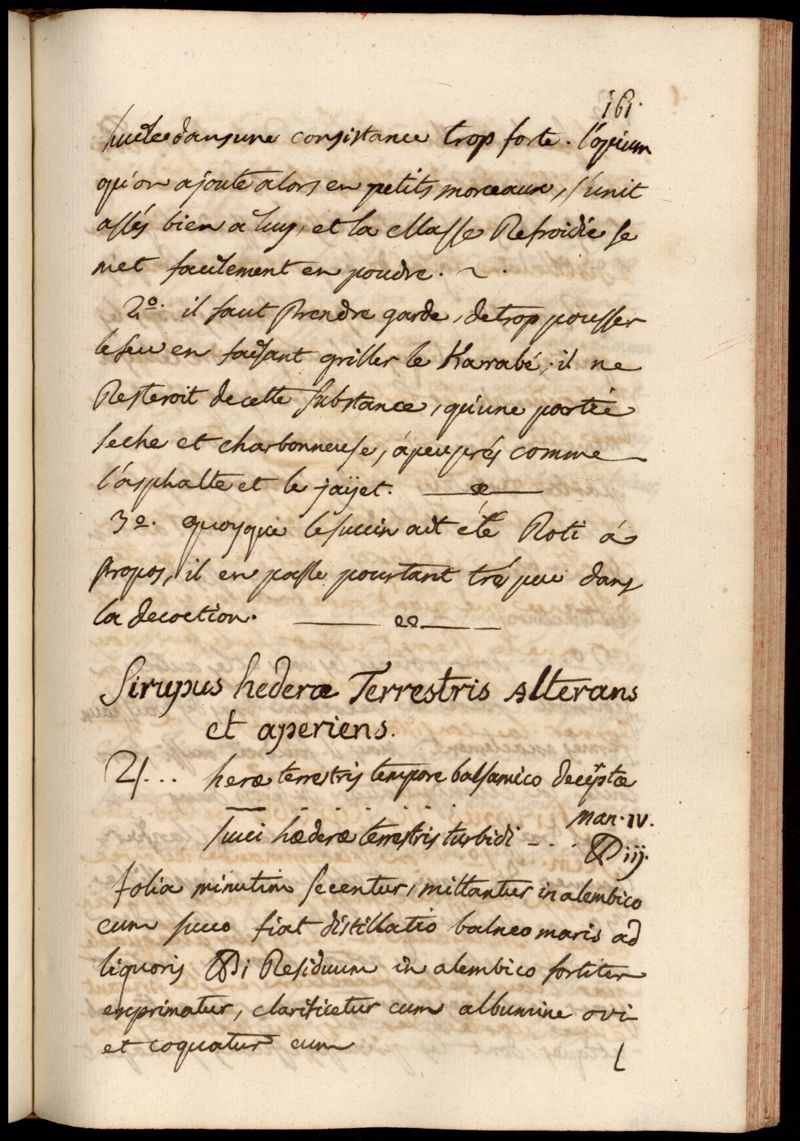 161.
huile dans une consistance trop forte. l'opium
qu'on ajoute alors en petits morceaux, s'unit
assés bien a luy, et la Masse Refroidie se
met facilement en poudre. ~.
2º. il faut prendre garde, de trop pousser
le feu en faisant griller le Karabé, il ne
Resteroit de cette substance, qu'une partie
seche et charbonneuse, à peu prés comme
l'asphalte et le jaÿet.
3º. quoyque le succin ait été Roti á
propos, il en passe pourtant tré peu dans
la decoction.
Sirupus hederæ Terrestris alterans
et aperiens.
♃... heræ terrestris tempore balsamico decerptæ
man. iv.
succi hæderæ terrestris turbidi - . . ℔ iij.
folia minutim secentur, mittantur in alembico
cum succo fiat distillatio balneo maris ad
liquoris ℔i Residuum in alembico fortiter
exprimatur, clarificetur cum albumine ovi
et coquatur cum